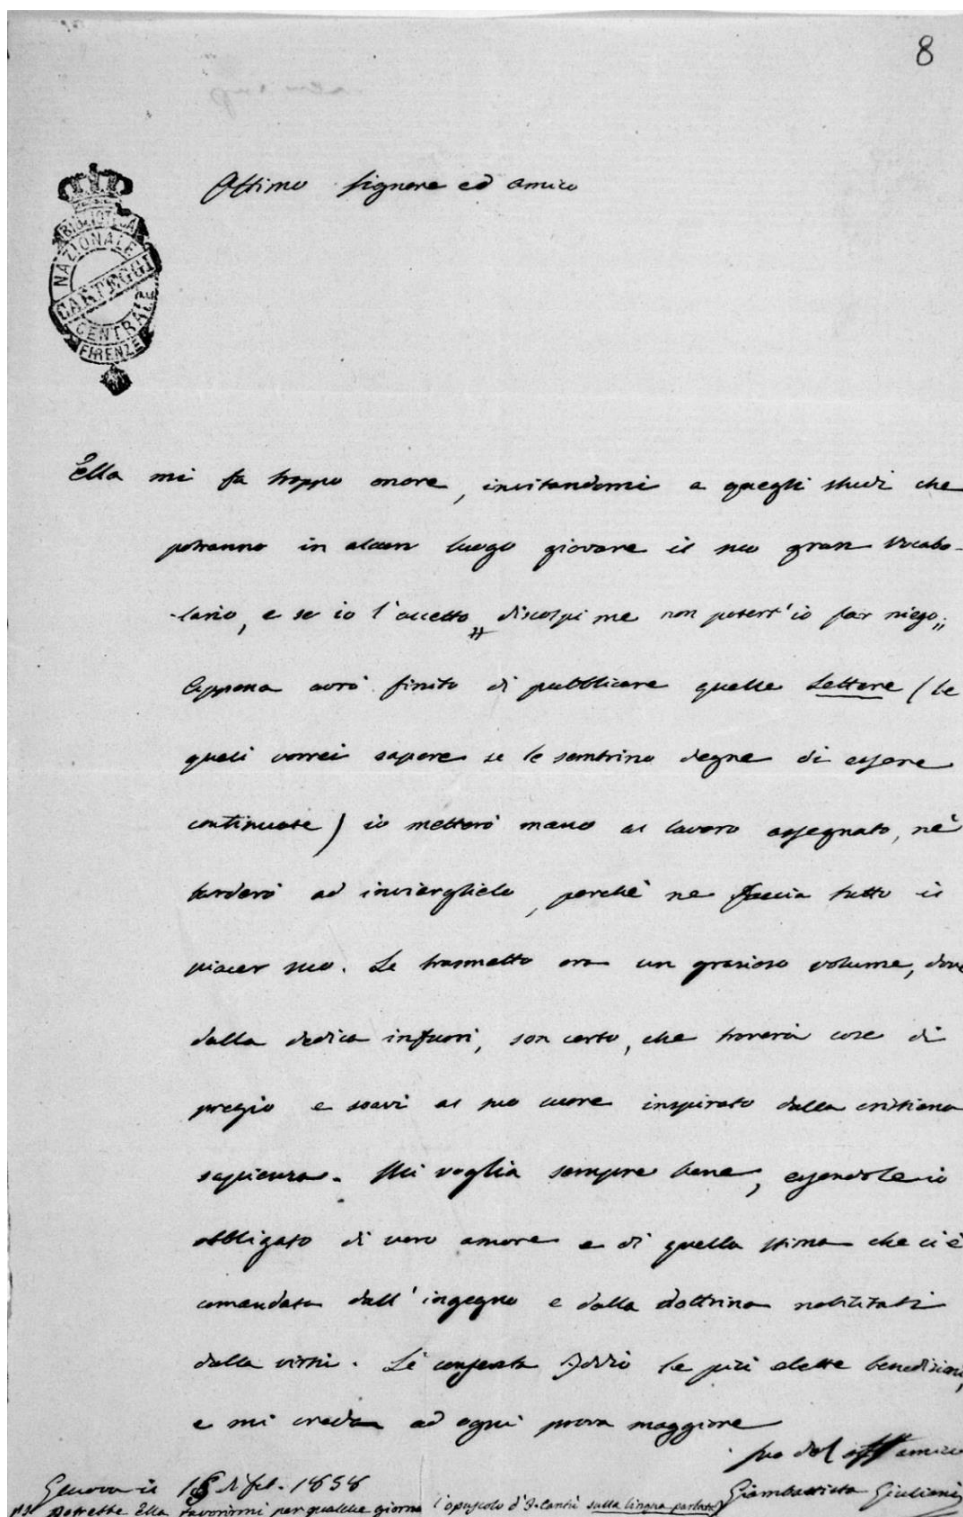 8
Ottimo Signore ed amico
BIBLIOTECA
NAZIONALE
CARTEGGI
CENTRALE
FIRENZE
Ella mi fa troppo onore, invitandomi a quegli studi che
potranno in alcun luogo giovare il suo gran Vocabo-
lario, e se io l'accetto „ discolpi me non potert' io far niego„
Appena avrò finito di pubblicare quelle Lettere (le
quali vorrei sapere se le sembrino degne di essere
continuate) io metterò mano al lavoro assegnato, nè
tarderò ad inviarglielo, perchè ne faccia tutto il
piacer suo. Le trasmetto ora un grazioso volume, dove
dalla dedica infuori, son certo, che troverà cose di
pregio e soavi al suo cuore inspirato dalla cristiana
sapienza. Mi voglia sempre bene, essendole io
obbligato di vero amore e di quella stima che ci è
comandata dall'ingegno e dalla dottrina nobilitati
dalla virtù. Le conservi Iddio le più elette benedizioni,
e mi creda ad ogni prova maggiore
suo amico
Genova il di feb. 1858
Giambattista Giuliani
PS. Potrebbe Ella favorirmi per qualche giorno l'opuscolo d' sulla lingua parlata?